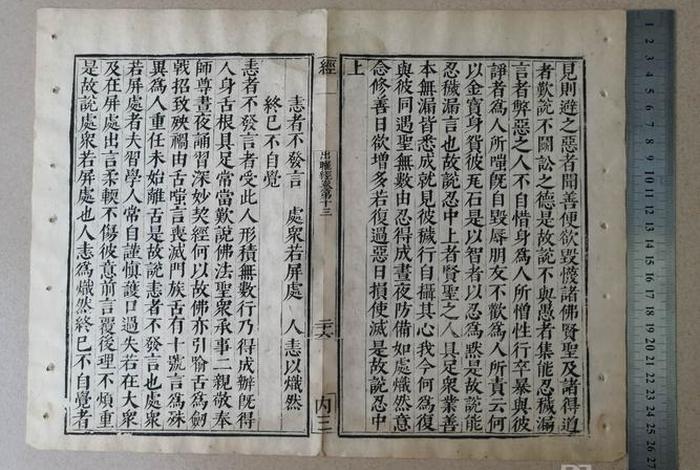 見則避之惡者聞善便欲毀憿諸佛賢聖及諸得道
者歎說不鬬訟之德是故說不與愚者集能忍穢漏
言者弊惡之人不自惜身為人所憎性行卒暴與彼
諍者為人所嗤旣自毀辱朋友不歡為人所責云何
以金寶身貿彼瓦石是以智者以忍為默是故說能
忍穢漏言也故說忍中上者賢聖之人具足衆業善
本無漏皆悉成就見彼穢行自攝其心我今何為復
與彼同遇聖無數由忍得成晝夜防備如處熾然意
念修善日欲增多若復過惡日損使滅是故說忍中
上
經
出曜經卷第十三
二十六
内三
恚者不發言 處衆若屏處 人恚以熾然
終已不自覺
恚者不發言者受此人形積無數行乃得成辦旣得
人身舌根具足常當歎說佛法聖衆承事二親敬奉
師尊晝夜誦習深妙契經何以故佛亦引喻舌為劒
戟招致殃禍由舌嗤言喪滅門族舌有十號言為殊
異為人重任未始離舌是故說恚者不發言也處衆
若屏處者夫習學人常自謹慎護口過失若在大衆
及在屏處出言柔輭不傷彼意前言覆後理不煩重
是故說處衆若屏處也人恚為熾然終已不自覺者
1
2
3
4
5
6
7
8
9
10
11
12
13
14
15
16
17
18
19
20
21
22
23
24
25
26
27